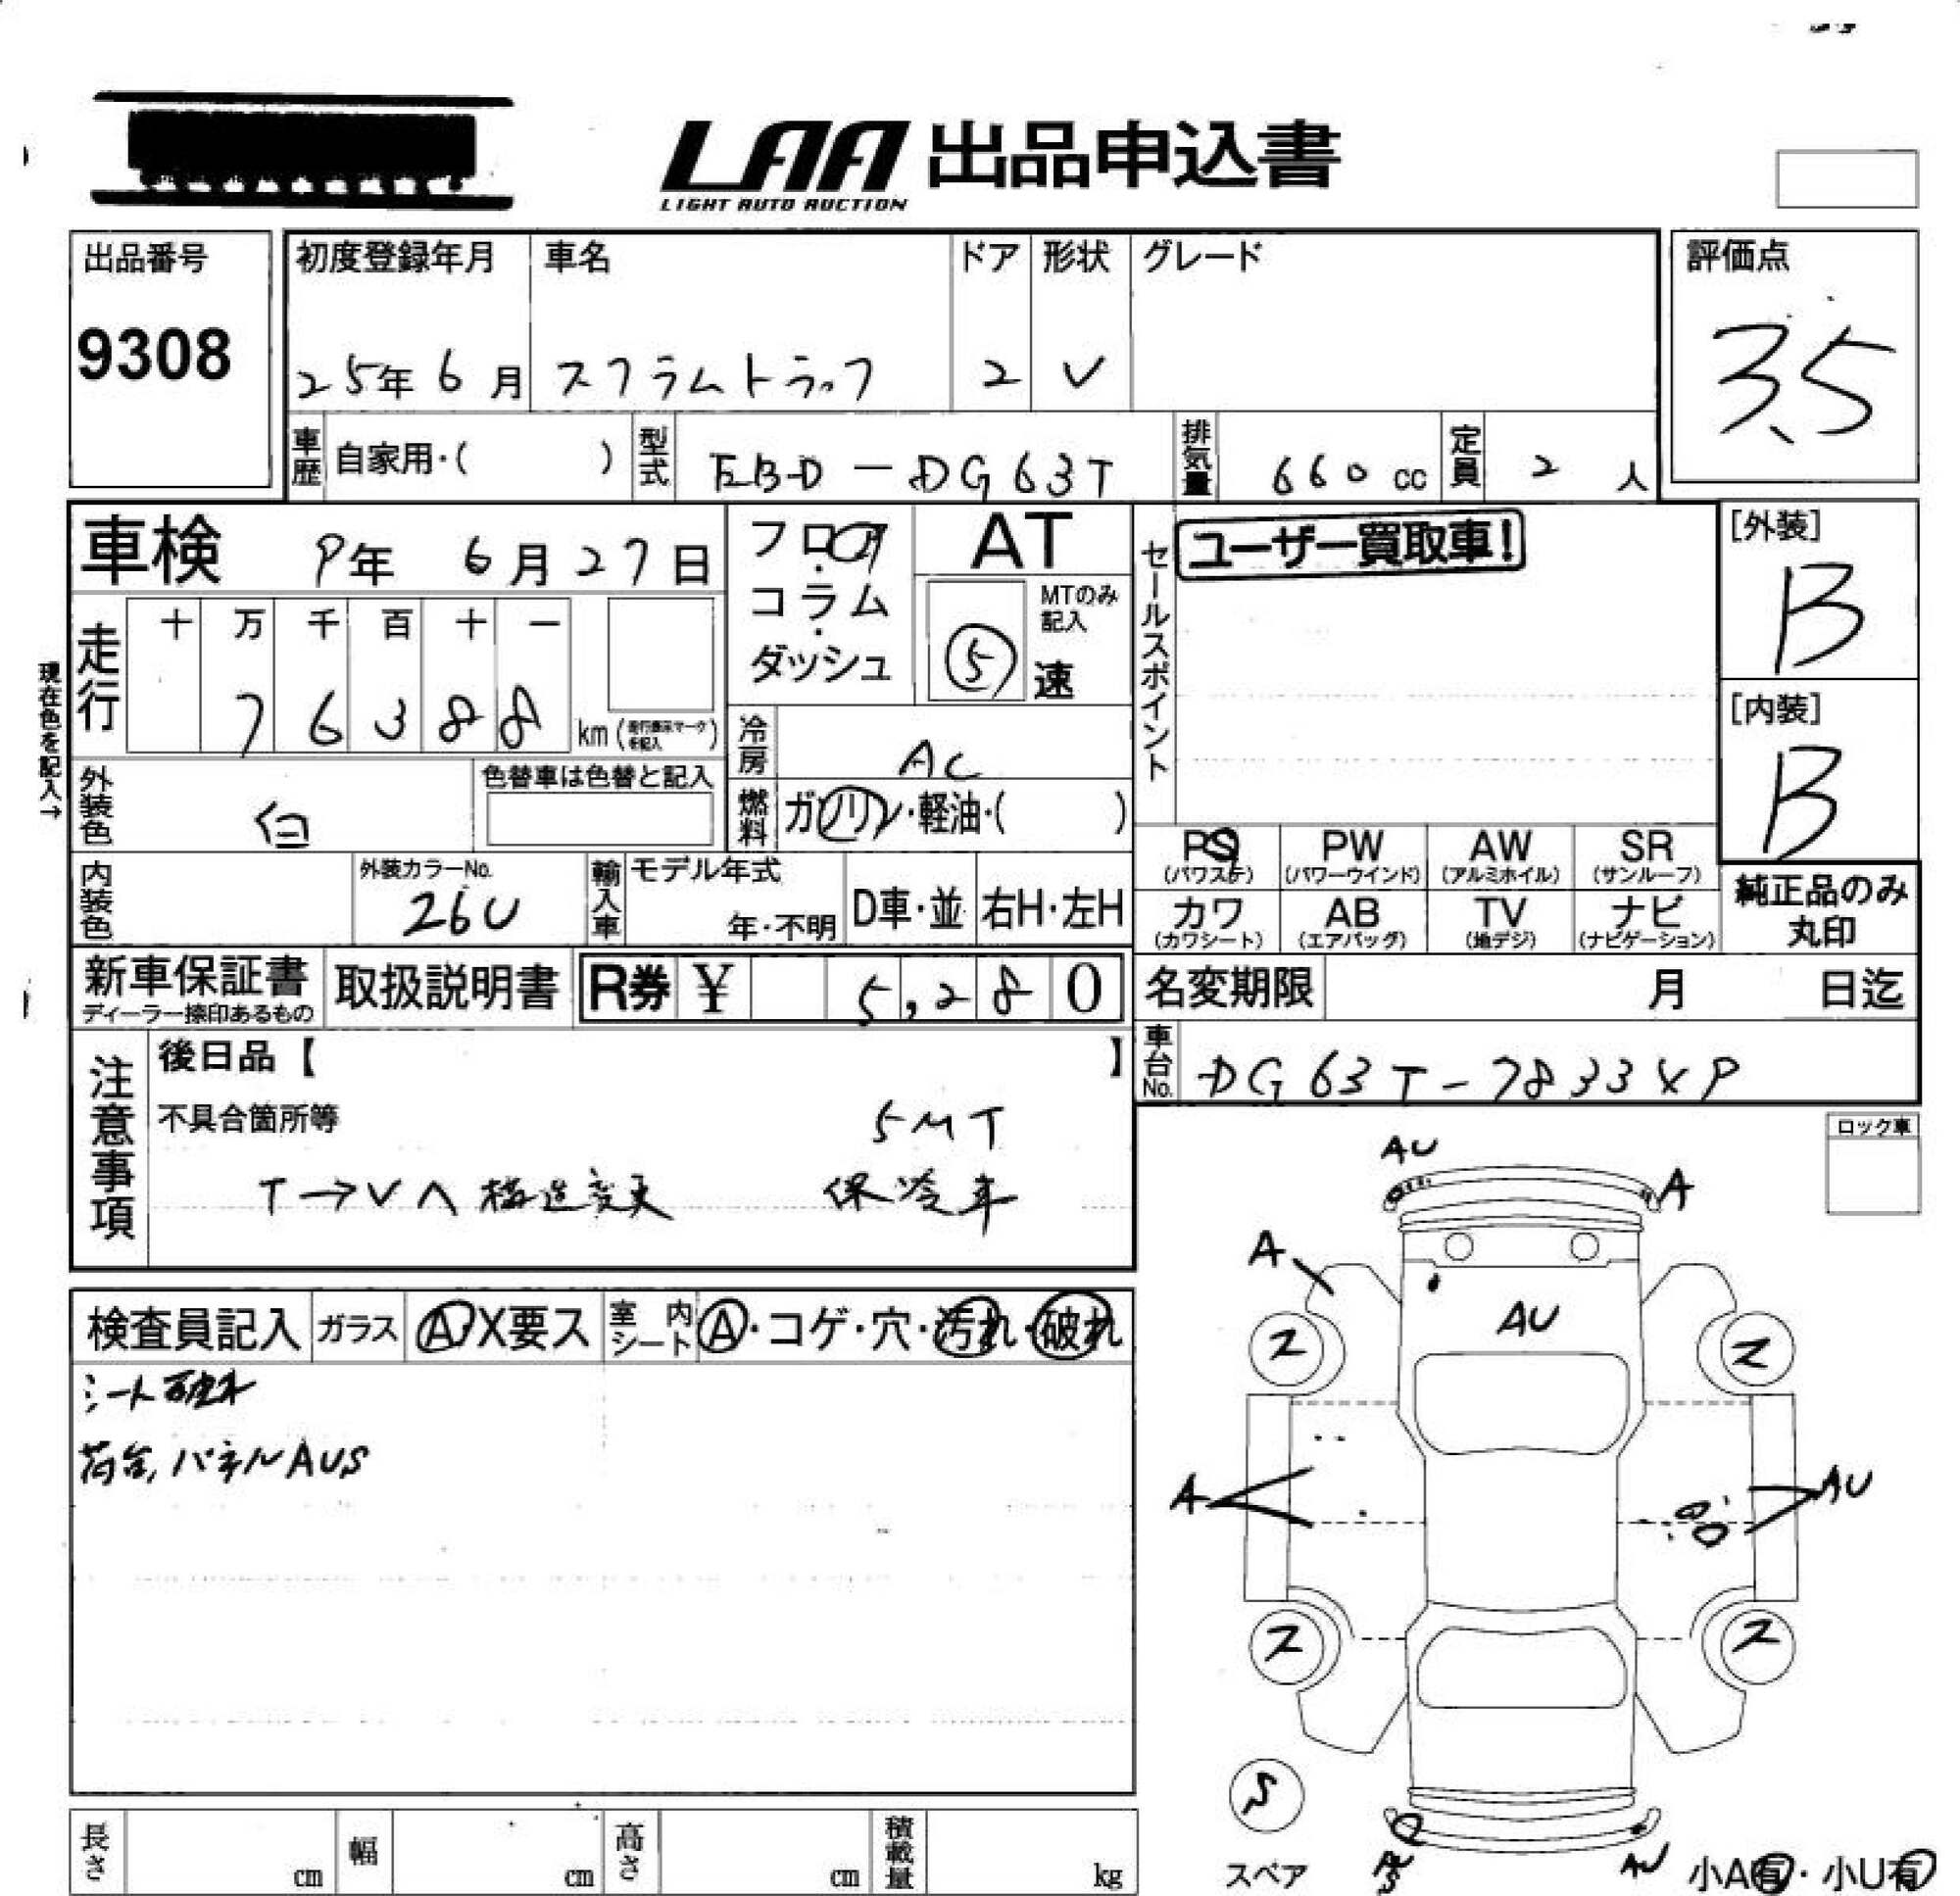 LAA 出品申込書
LIGHT AUTO AUCTION
出品番号
9308
初度登録年月 車名 ドア 形状 グレード
25年6月 スクラムトラック 2 V
評価点
3.5
車歴 自家用・( ) 型式 EBD-DG63T 排気量 660cc 定員 2人
車検 9年6月27日
フロア・コラム・ダッシュ
AT
MTのみ記入
5速
セールスポイント
ユーザー買取車!
[外装]
B
[内装]
B
走行 十 万 千 百 十 一
76388 km(走行表示マークを記入)
現在色を記入→
冷房 AC
外装色 白
色替車は色替と記入
燃料 ガソリン・軽油・( )
PS PW AW SR
(パワステ) (パワーウインド) (アルミホイル) (サンルーフ)
カワ AB TV ナビ
(カワシート) (エアバッグ) (地デジ) (ナビゲーション)
純正品のみ
丸印
内装色 外装カラーNo. 26U
輸入車 モデル年式 年・不明 D車・並 右H・左H
新車保証書 取扱説明書 R券 ¥ 5,280
ディーラー捺印あるもの
名変期限 月 日迄
車台No. DG63T-7833
注意事項
後日品【 】
不具合箇所等 5MT
T→Vへ構造変更 保冷車
ロック車
検査員記入 ガラス A・X要ス 室内シート A・コゲ・穴・汚れ・破れ
シート破れ
荷台,パネルAUS
AU
A
A
AU
A
AU
AU
スペア
小A有・小U有
長さ cm 幅 cm 高さ cm 積載量 kg